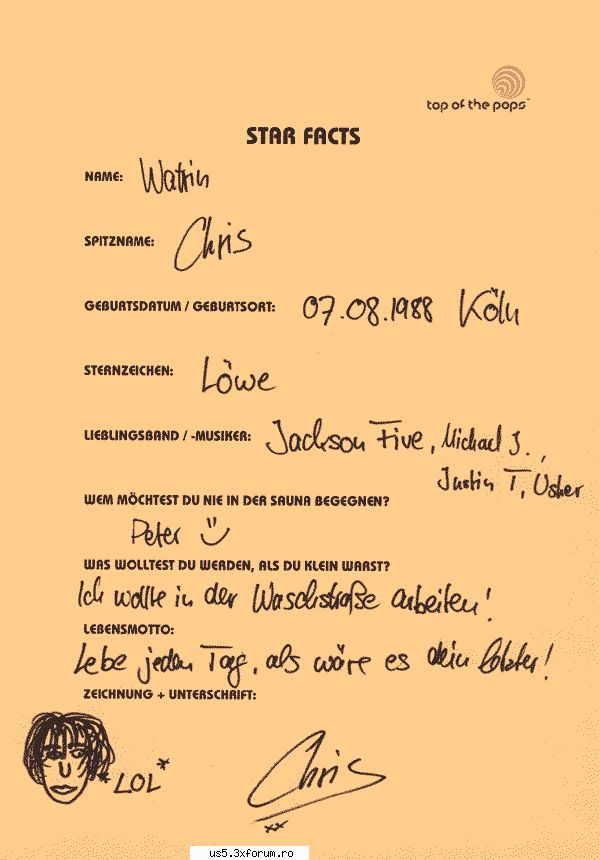 top of the pops™
STAR FACTS
NAME: Watrin
SPITZNAME: Chris
GEBURTSDATUM / GEBURTSORT: 07.08.1988 Köln
STERNZEICHEN: Löwe
LIEBLINGSBAND / -MUSIKER: Jackson Five, Michael J.,
Justin T, Usher
WEM MÖCHTEST DU NIE IN DER SAUNA BEGEGNEN?
Peter
WAS WOLLTEST DU WERDEN, ALS DU KLEIN WARST?
Ich wollte in der Waschstraße arbeiten!
LEBENSMOTTO:
Lebe jeden Tag, als wäre es dein letzter!
ZEICHNUNG + UNTERSCHRIFT:
*LOL* Chris
xx
us5.3xforum.ro